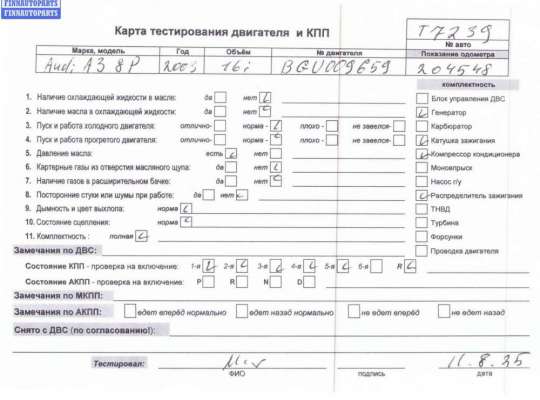 FINNAUTOPARTS
FINNAUTOPARTS
Карта тестирования двигателя и КПП
T7239
№ авто
Марка, модель Год Объём № двигателя Показание одометра
Audi A3 8P 16i BGU009659 204548
комплектность
1. Наличие охлаждающей жидкости в масле: да нет Блок управления ДВС
2. Наличие масла в охлаждающей жидкости: да нет Генератор
3. Пуск и работа холодного двигателя: отлично- норма - плохо - не завелся- Карбюратор
4. Пуск и работа прогретого двигателя: отлично- норма - плохо - не завелся- Катушка зажигания
5. Давление масла: есть нет Компрессор кондиционера
6. Картерные газы из отверстия масляного щупа: да нет Моновпрыск
7. Наличие газов в расширительном бачке: да нет Насос г/у
8. Посторонние стуки или шумы при работе: да нет Распределитель зажигания
9. Дымность и цвет выхлопа: норма ТНВД
10. Состояние сцепления: норма Турбина
11. Комплектность : полная Форсунки
Замечания по ДВС: Проводка двигателя
Состояние КПП - проверка на включение: 1-я 2-я 3-я 4-я 5-я 6-я R
Состояние АКПП - проверка на включение: P R N D
Замечания по МКПП:
Замечания по АКПП: едет вперёд нормально едет назад нормально не едет вперёд не едет назад
Снято с ДВС (по согласованию!):
Тестировал: 11.8.25
ФИО подпись дата